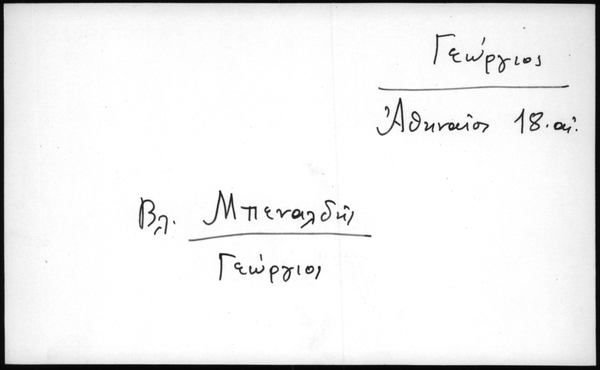 Γεώργιος
Ἀθηναῖος 18. αἰ.
Βλ. Μπεναλδῆς
Γεώργιος